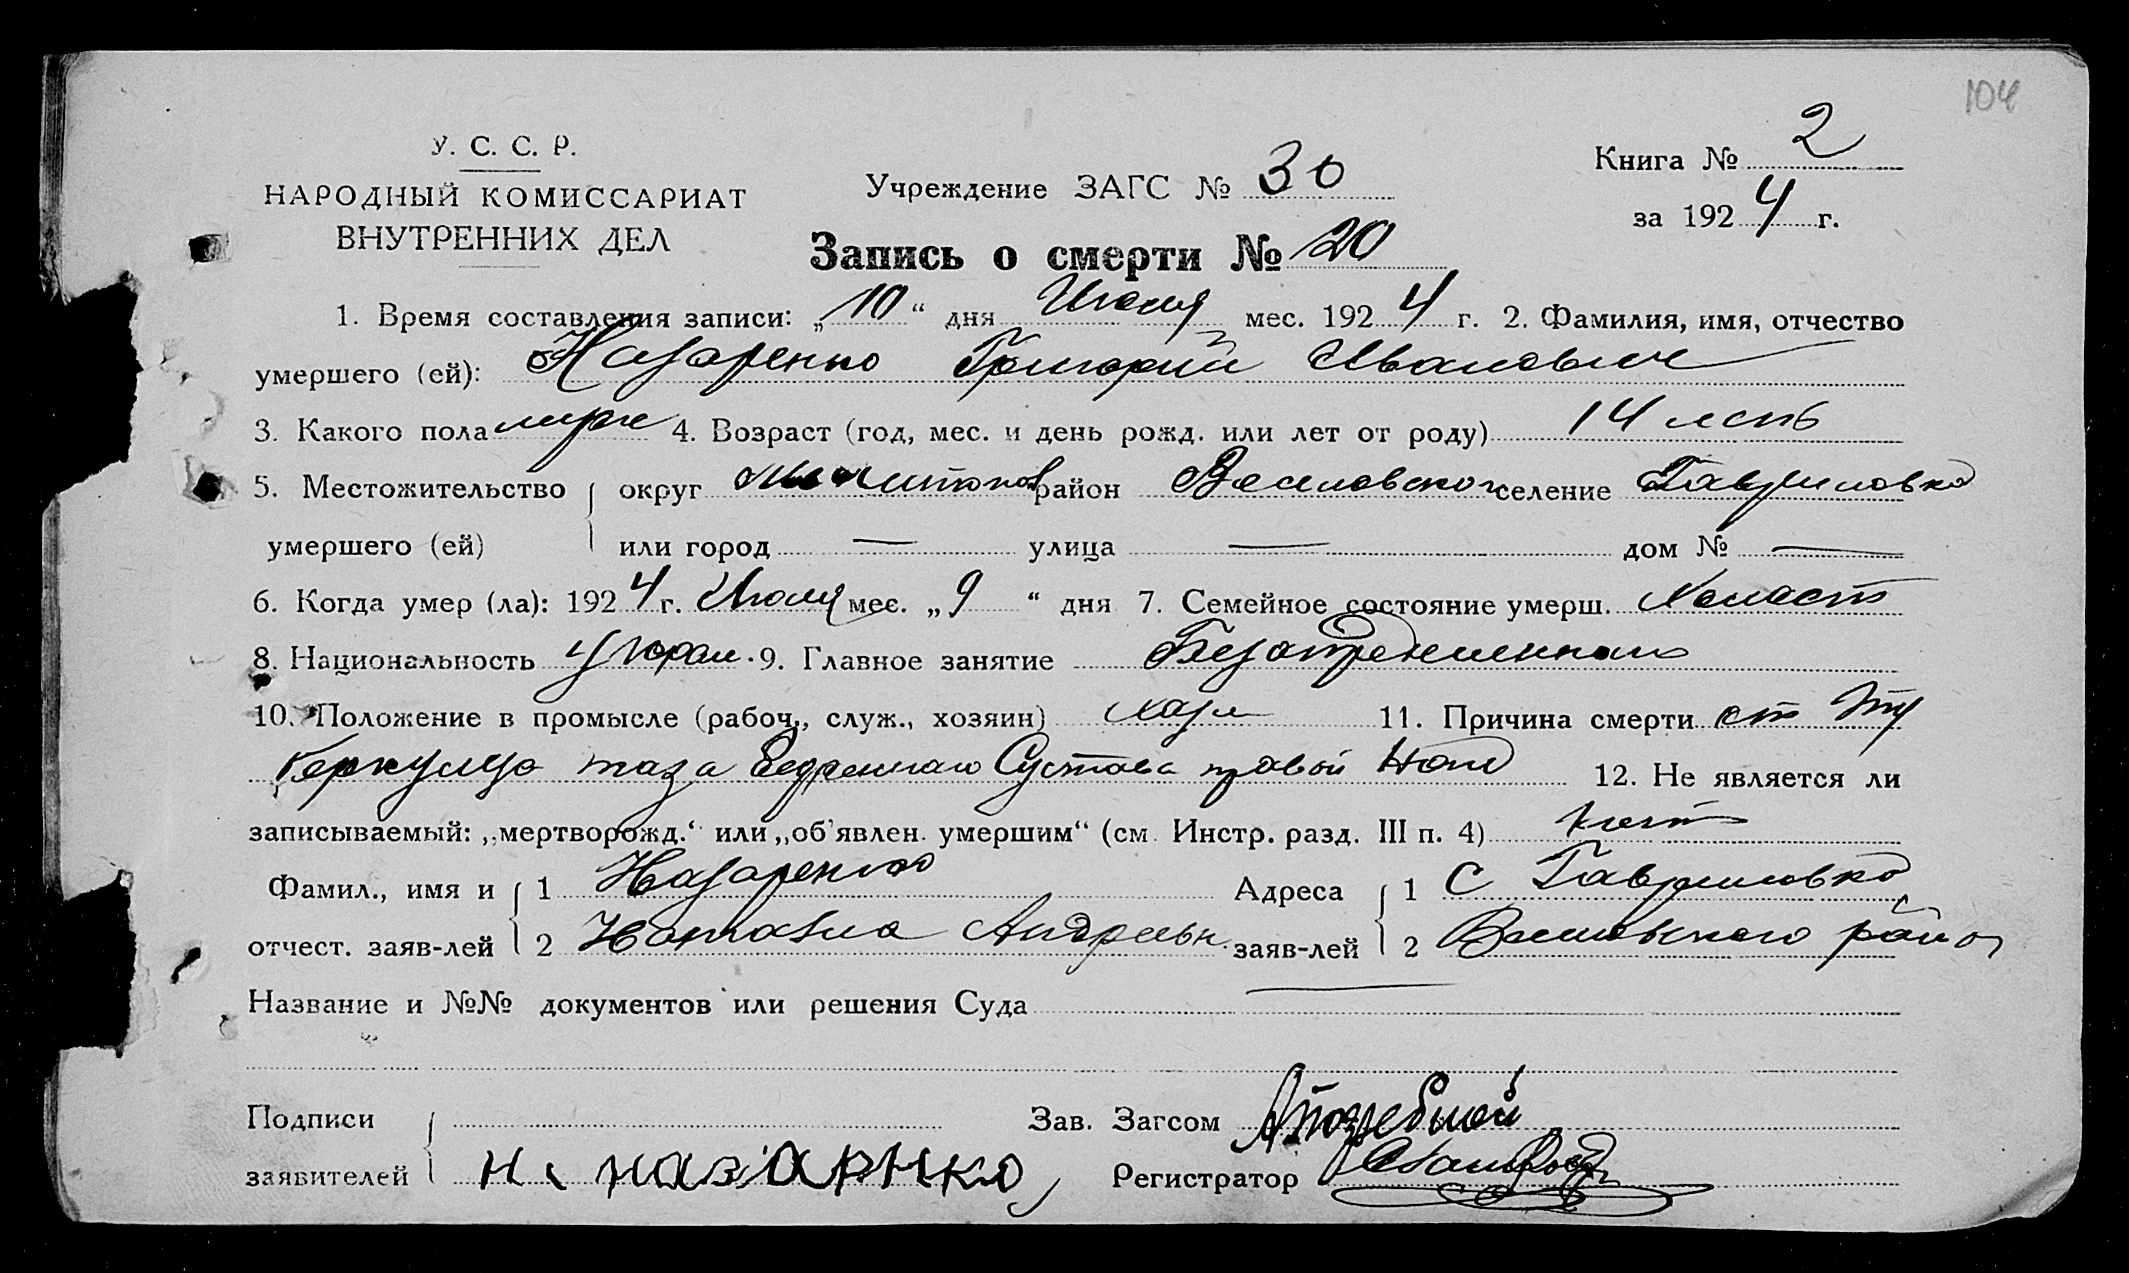 104
У. С. С. Р.
НАРОДНЫЙ КОМИССАРИАТ
ВНУТРЕННИХ ДЕЛ
Учреждение ЗАГС № 30
Книга № 2
за 1924 г.
Запись о смерти № 20
1. Время составления записи: „10“ дня Июля мес. 1924 г. 2. Фамилия, имя, отчество
умершего (ей): Назаренко Григорий Иванович
3. Какого пола муж 4. Возраст (год, мес. и день рожд. или лет от роду) 14 летъ
5. Местожительство округ район селение Гавриловка
умершего (ей) или город — улица — дом № —
6. Когда умер (ла): 1924 г. Июля мес. „9“ дня 7. Семейное состояние умерш. Холост
8. Национальность украин. 9. Главное занятие
10. Положение в промысле (рабоч., служ., хозяин) 11. Причина смерти от Ту
беркулеза таза бедренного Сустава правой Ноги 12. Не является ли
записываемый: „мертворожд.“ или „об'явлен. умершим“ (см. Инстр. разд. III п. 4) нет
Фамил., имя и 1 Назаренко Адреса 1 С Гавриловка
отчест. заяв-лей 2 Наталия Андреевн. заяв-лей 2 района
Название и №№ документов или решения Суда —
Подписи Зав. Загсом
заявителей н. назарнко Регистратор